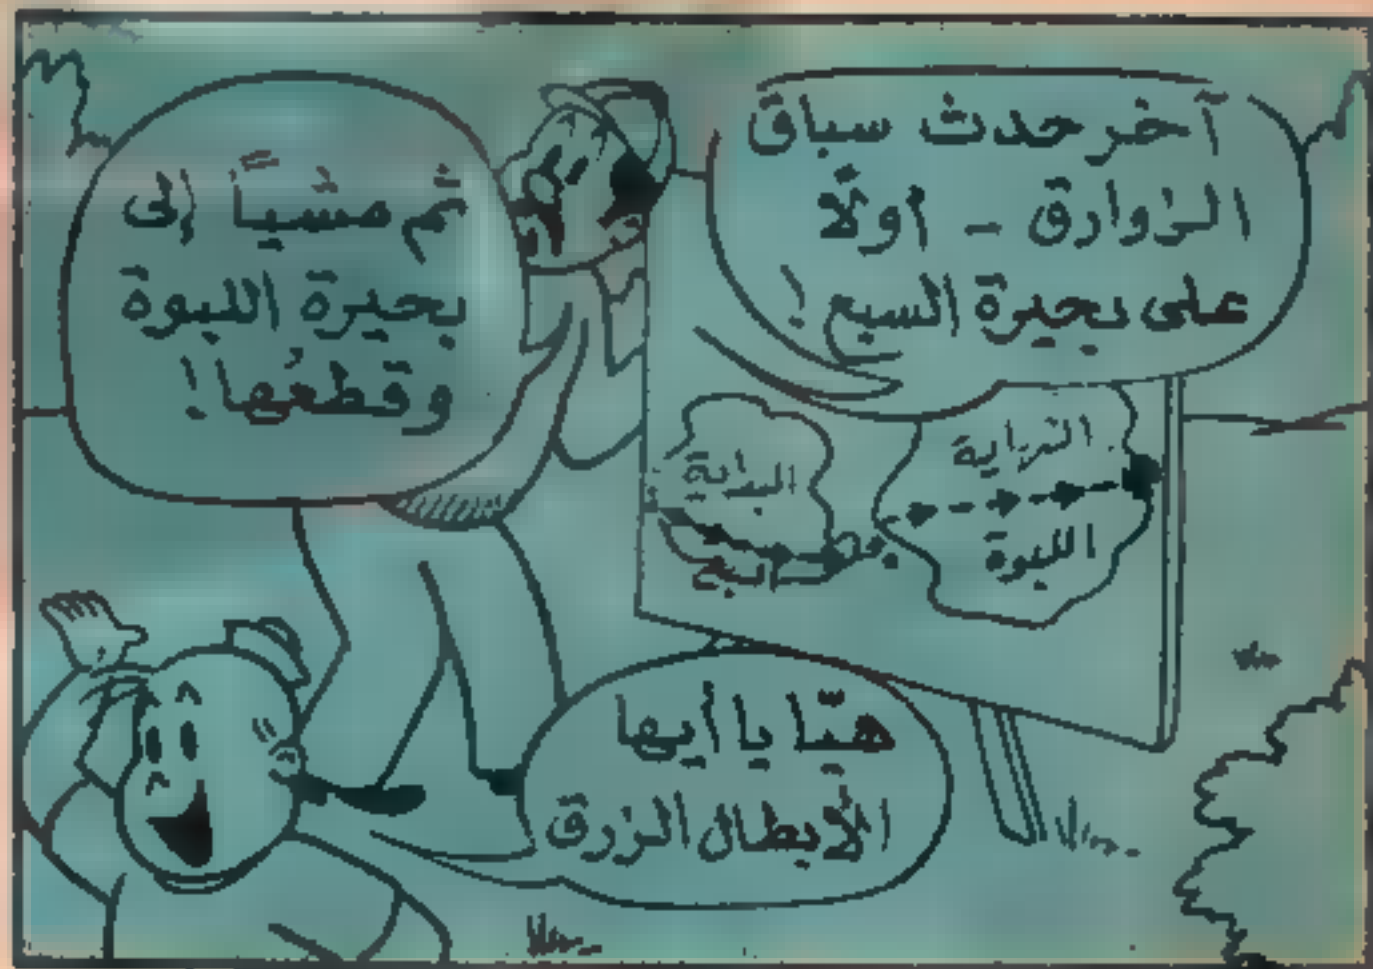 آخر حدث سباق
الزوارق - أولًا
على بحيرة السبع!
ثم مشياً إلى
بحيرة اللبوة
وقطعُها!
النهاية
اللبوة
البداية
السبع
هيّا يا أيها
الأبطال الزرق